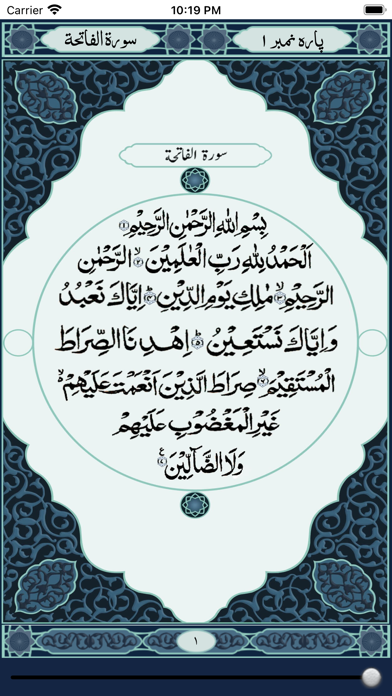 Carrier 10:19 PM
پارہ نمبر ۱ سورۃ الفاتحۃ
سورۃ الفاتحۃ
بِسْمِ اللهِ الرَّحْمٰنِ الرَّحِيْمِ ۝۱
اَلْحَمْدُ لِلّٰهِ رَبِّ الْعٰلَمِيْنَ ۝۲ الرَّحْمٰنِ
الرَّحِيْمِ ۝۳ مٰلِكِ يَوْمِ الدِّيْنِ ۝۴ اِيَّاكَ نَعْبُدُ
وَاِيَّاكَ نَسْتَعِيْنُ ۝۵ اِهْدِنَا الصِّرَاطَ
الْمُسْتَقِيْمَ ۝ صِرَاطَ الَّذِيْنَ اَنْعَمْتَ عَلَيْهِمْ
غَيْرِ الْمَغْضُوْبِ عَلَيْهِمْ
وَلَا الضَّآلِّيْنَ ۝
۱